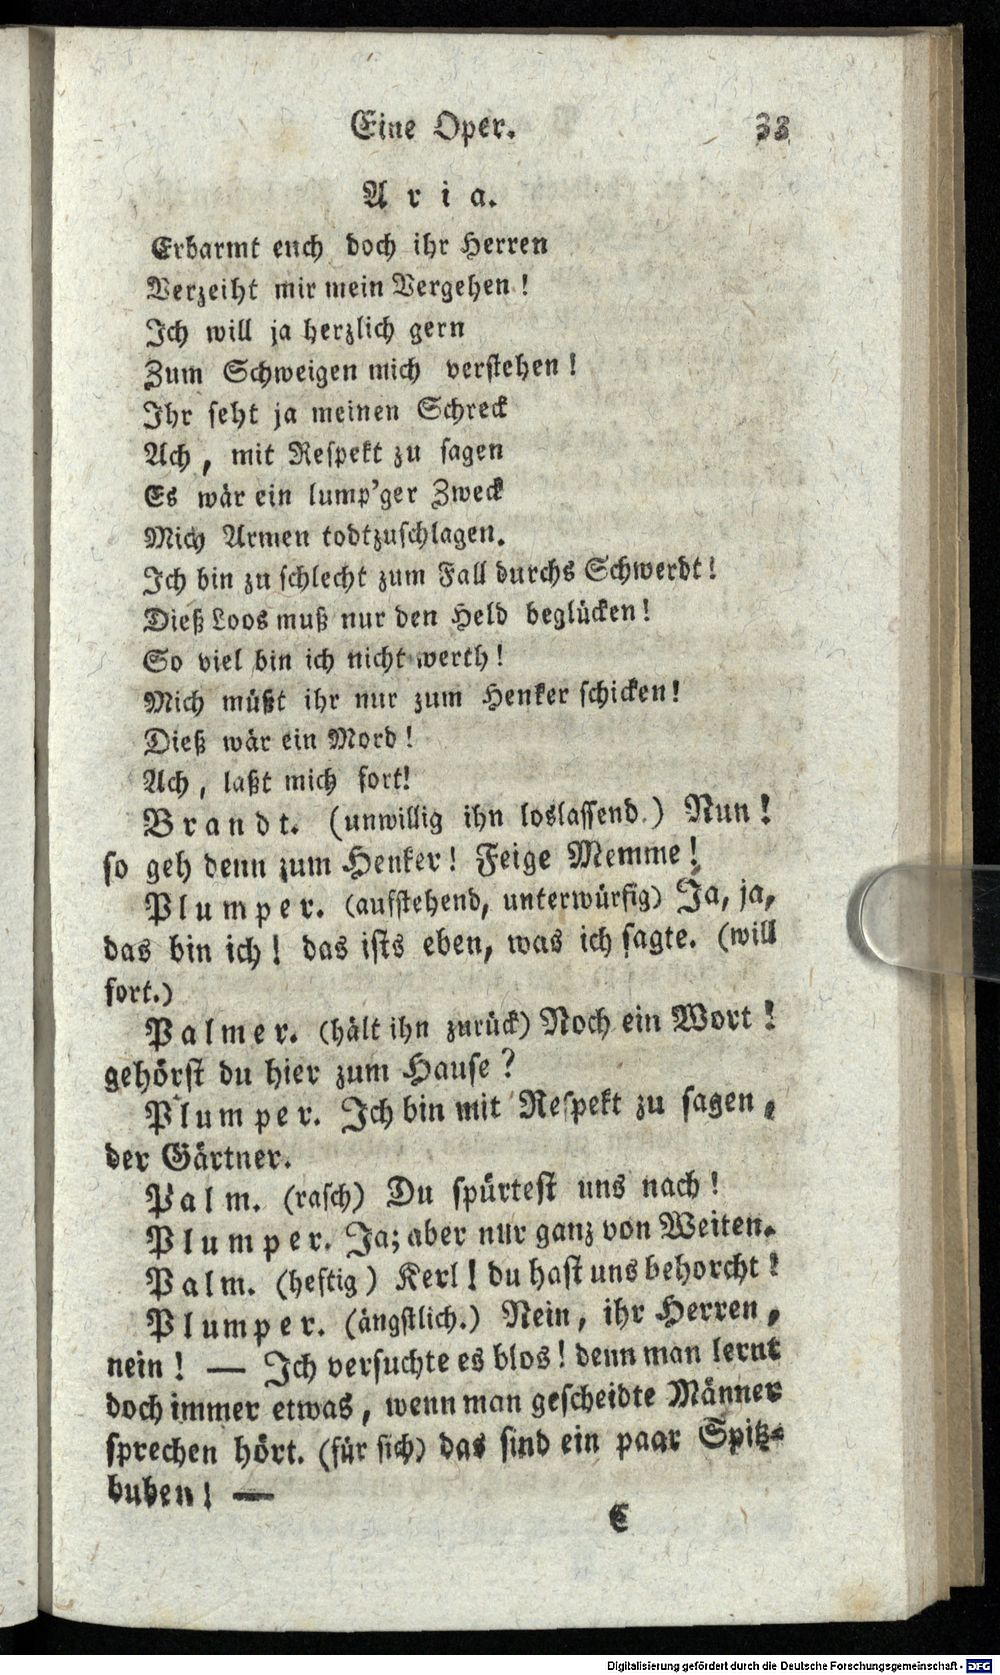 Eine Oper. 33
Aria.
Erbarmt euch doch ihr Herren
Verzeiht mir mein Vergehen!
Ich will ja herzlich gern
Zum Schweigen mich verstehen!
Ihr seht ja meinen Schreck
Ach, mit Respekt zu sagen
Es wär ein lump'ger Zweck
Mich Armen todtzuschlagen.
Ich bin zu schlecht zum Fall durchs Schwerdt!
Dieß Loos muß nur den Held beglücken!
So viel bin ich nicht werth!
Mich müßt ihr nur zum Henker schicken!
Dieß wär ein Mord!
Ach, laßt mich fort!
Brandt. (unwillig ihn loslassend.) Nun!
so geh denn zum Henker! Feige Memme!
Plumper. (aufstehend, unterwürfig) Ja, ja,
das bin ich! das ists eben, was ich sagte. (will
fort.)
Palmer. (hält ihn zurück) Noch ein Wort!
gehörst du hier zum Hause?
Plumper. Ich bin mit Respekt zu sagen,
der Gärtner.
Palm. (rasch) Du spürtest uns nach!
Plumper. Ja; aber nur ganz von Weiten.
Palm. (heftig) Kerl! du hast uns behorcht!
Plumper. (ängstlich.) Nein, ihr Herren,
nein! — Ich versuchte es blos! denn man lernt
doch immer etwas, wenn man gescheidte Männer
sprechen hört. (für sich) das sind ein paar Spitz-
buben! —
C
Digitalisierung gefördert durch die Deutsche Forschungsgemeinschaft - DFG